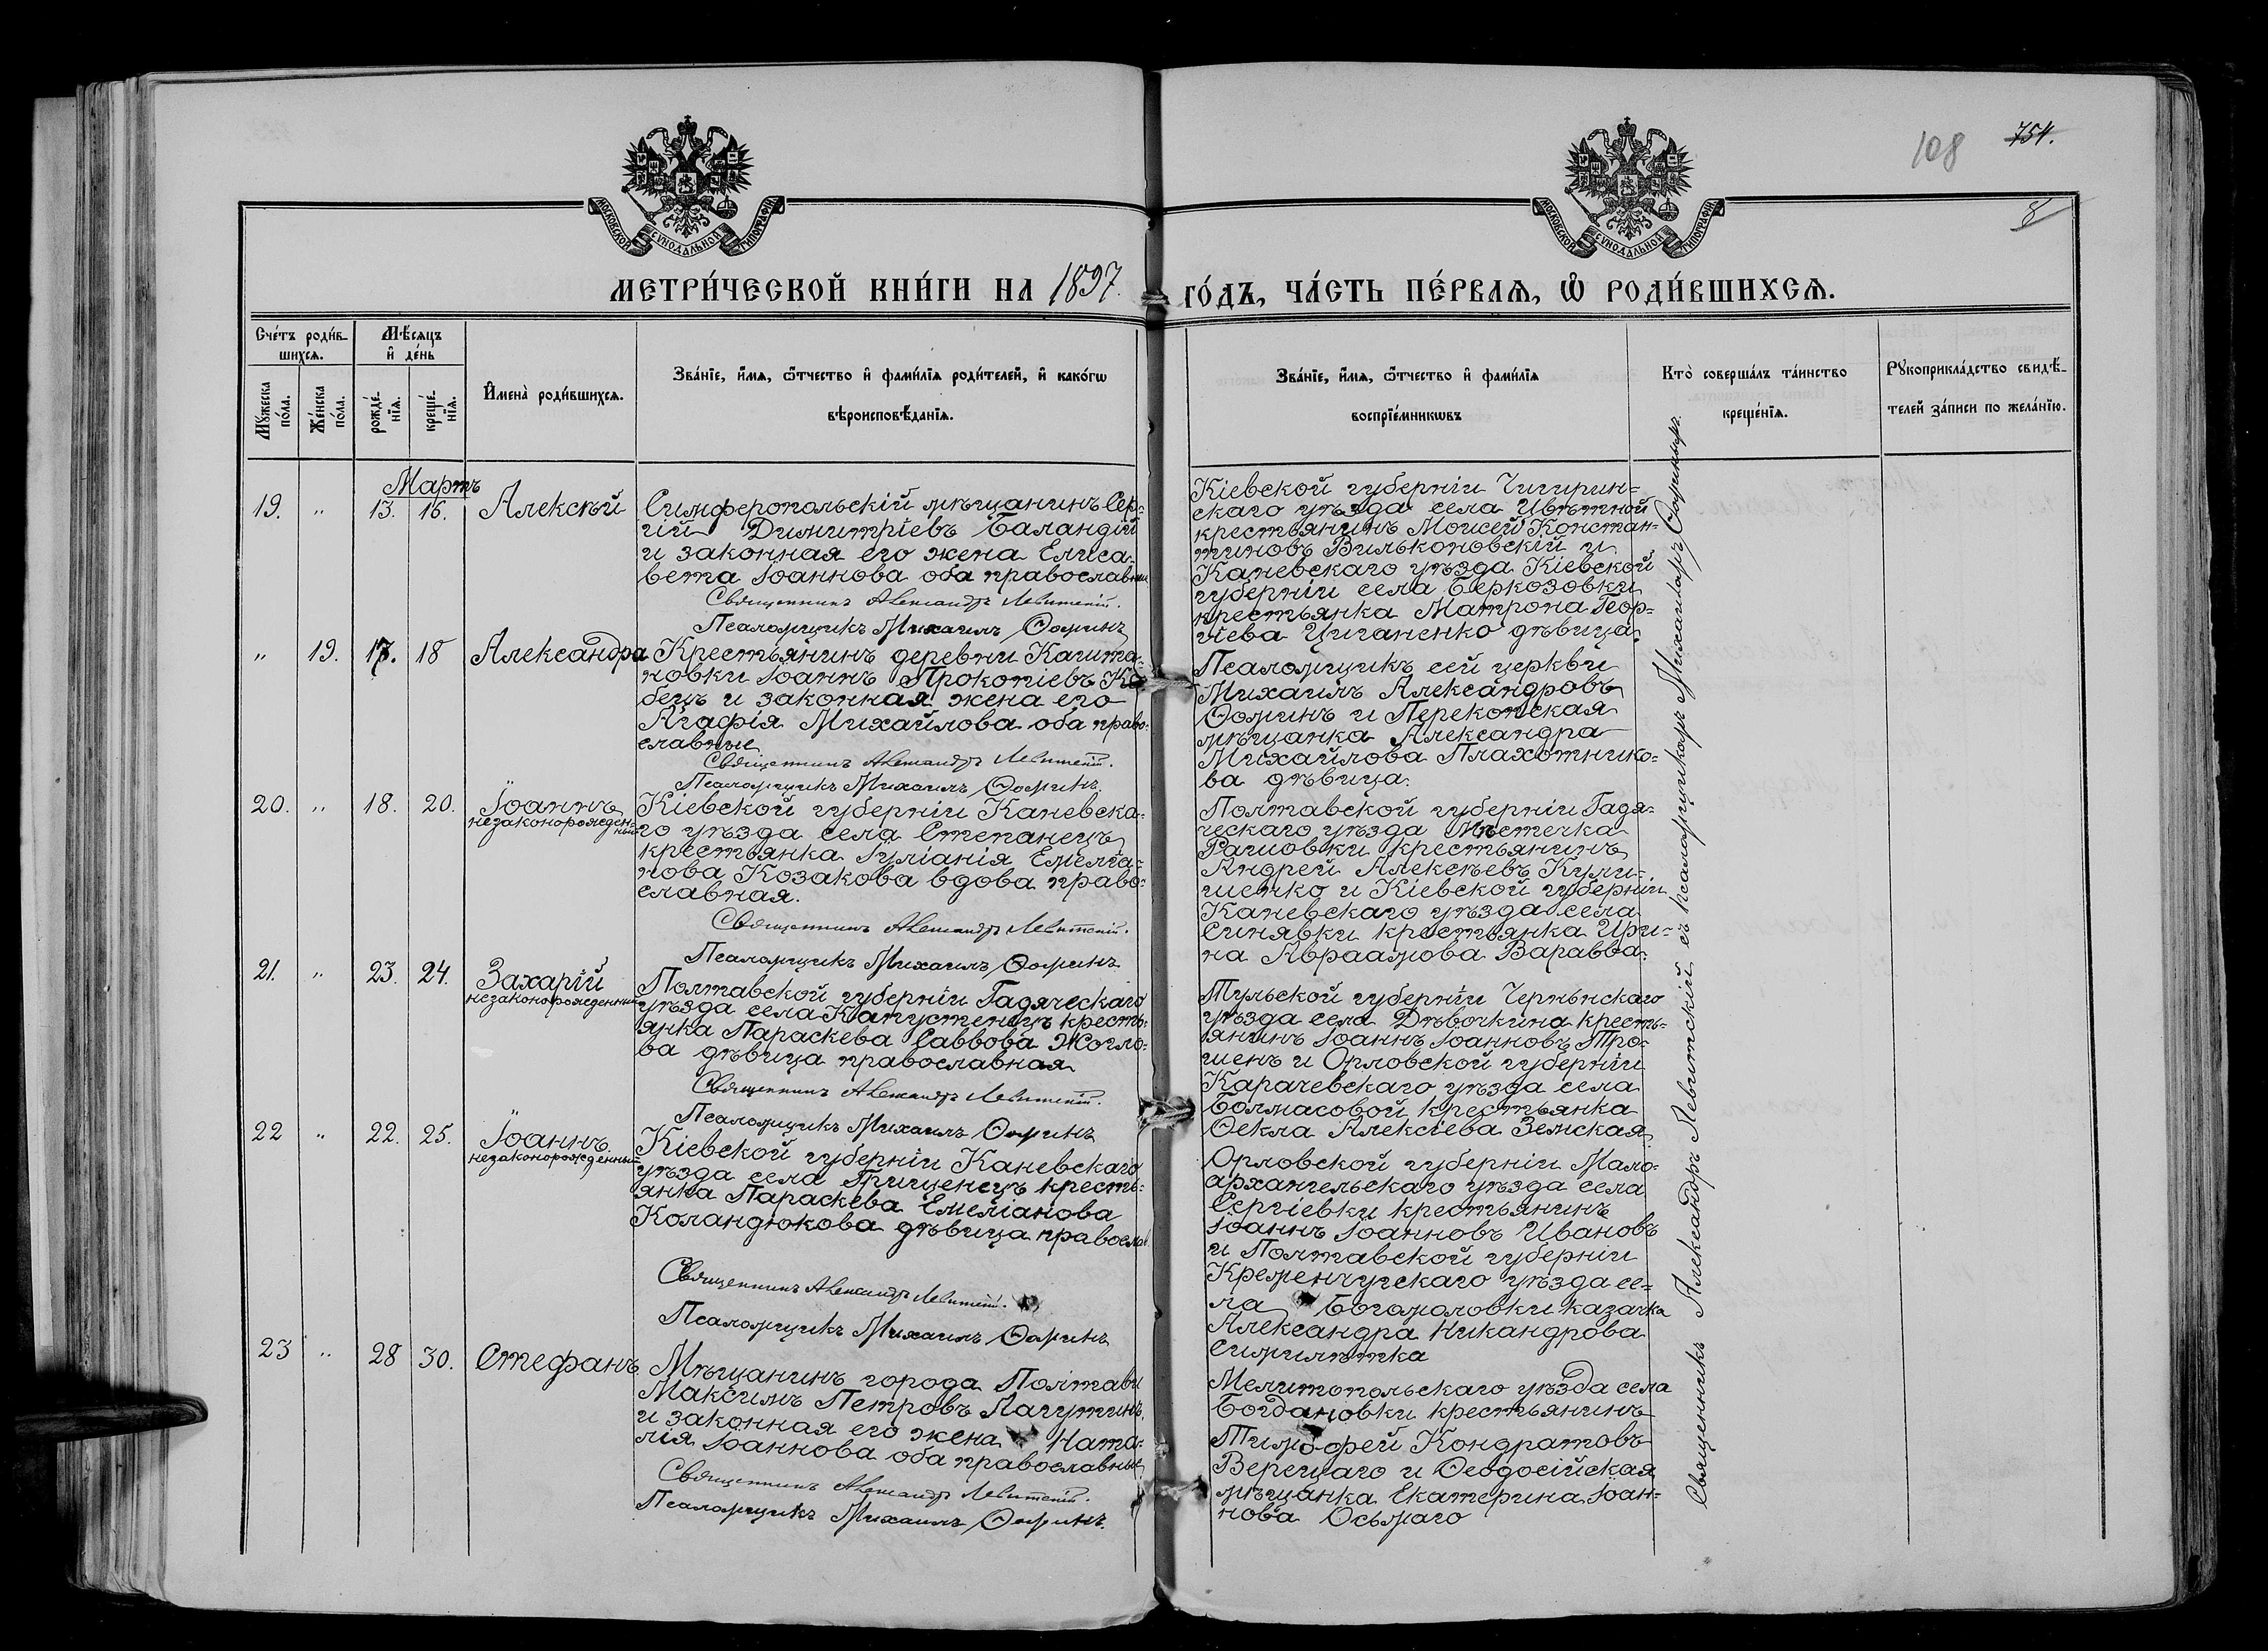 108 754.
8
МОСКОВСКОЙ СѴНОДАЛЬНОЙ ТИПОГРАФІИ
МОСКОВСКОЙ СѴНОДАЛЬНОЙ ТИПОГРАФІИ
МЕТРИ́ЧЕСКОЙ КНИ́ГИ НА 1897 ГО́ДЪ, ЧА́СТЬ ПЕ́РВАѦ, Ѽ РОДИ́ВШИХСѦ.
Сче́тъ роди́в-
шихсѧ.
Мꙋжеска по́ла.
Же́нска по́ла.
Мѣ́сяцъ и҆ де́нь
рожде́-нїѧ.
креще́-нїѧ.
И҆мена̀ роди́вшихсѧ.
Зва́нїе, и҆́мѧ, ѻ҆́тчество и҆ фами́лїѧ роди́телей, и҆ како́гѡ
вѣроисповѣ́данїѧ.
Зва́нїе, и҆́мѧ, ѻ҆́тчество и҆ фами́лїѧ
воспрїе́мникѡвъ
Кто̀ соверша́лъ та́инство
креще́нїѧ.
Рꙋкоприкла́дство свидѣ́-
телей за́писи по жела́нїю.
Мартъ
19. " 13. 16. Алексѣй
Симферопольскій мѣщанинъ Сер-
гій Димитріевъ Баландій
и законная его жена Елиса-
вета Іоаннова оба православные
Священникъ Александръ Левитскій.
Псаломщикъ Михаилъ Ѳоминъ
Кіевской губерніи Чигирин-
скаго уѣзда села Цвѣтной
крестьянинъ Моисей Констан-
тиновъ Вильконовскій и
Каневскаго уѣзда Кіевской
губерніи села Беркозовки
крестьянка Матрона Геор-
гіева Циганенко дѣвица.
" 19. 17. 18 Александра
Крестьянинъ деревни Кашта-
новки Іоаннъ Прокопіевъ
бецъ и законная жена его
Агафія Михайлова оба право-
славные
Священникъ Александръ Левитскій.
Псаломщикъ Михаилъ Ѳоминъ.
Псаломщикъ сей церкви
Михаилъ Александровъ
Ѳоминъ и Перекопская
мѣщанка Александра
Михайлова Плахотнико-
ва дѣвица.
20. " 18. 20. Іоаннъ
незаконорожденный
Кіевской губерніи Каневска-
го уѣзда села Степанецъ
крестьянка Іуліанія Емеліа-
нова Козакова вдова право-
славная.
Священникъ Александръ Левитскій.
Псаломщикъ Михаилъ Ѳоминъ
Полтавской губерніи Гадя-
ческаго уѣзда Мѣстечка
Рашовки крестьянинъ
Андрей Алексѣевъ Кули-
шенко и Кіевской губерніи
Каневскаго уѣзда села
Синявки крестьянка Ири-
на Авраамова Варавва.
21. " 23. 24. Захарій
незаконорожденный
Полтавской губерніи Гадяческаго
уѣзда села Капустенцъ кресть-
янка Параскева Саввова Жогло-
ва дѣвица православная
Священникъ Александръ Левитскій.
Псаломщикъ Михаилъ Ѳоминъ
Тульской губерніи Чернынскаго
уѣзда села Дѣвочкина кресть-
янинъ Іоаннъ Іоанновъ Тро-
шенъ и Орловской губерніи
Карачевскаго уѣзда села
Болмасовой крестьянка
Ѳекла Алексіева Земская
22 " 22. 25. Іоаннъ
незаконорожденный
Кіевской губерніи Каневскаго
уѣзда села Грищенецъ кресть-
янка Параскева Емеліанова
Коландюкова дѣвица правосл.
Священникъ Александръ Левитскій.
Псаломщикъ Михаилъ Ѳоминъ
Орловской губерніи Мало-
архангельскаго уѣзда села
Сергіевки крестьянинъ
Іоаннъ Іоанновъ Ивановъ
и Полтавской губерніи
Кременчугскаго уѣзда се-
ла Богомоловки казачка
Александра Никандрова
Симилѣтка
23 " 28 30. Стефанъ
Мѣщанинъ города Полтавы
Максимъ Петровъ Лагутинъ
и законная его жена Ната-
лія Іоаннова оба православные
Священникъ Александръ Левитскій.
Псаломщикъ Михаилъ Ѳоминъ.
Мелитопольскаго уѣзда села
Богдановки крестьянинъ
Тимофей Кондратовъ
Верещаго и Ѳеодосійская
мѣщанка Екатерина Іоан-
нова Осьмаго
Священникъ Александръ Левитскій съ псаломщикомъ Михаиломъ Ѳоминымъ.